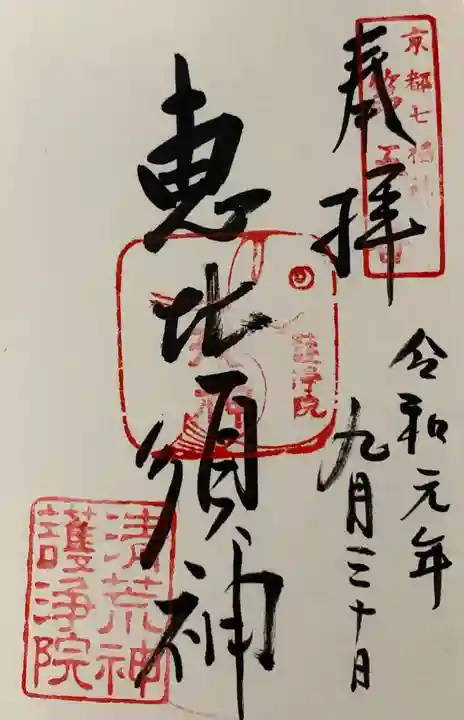 京都七福神
奉拝
令和元年
九月三十日
恵比須神
護浄院
清荒神
護浄院